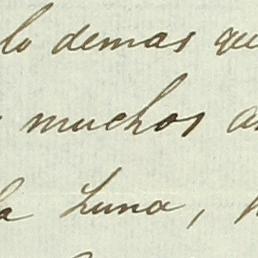 lo demas que
muchos
la Luna,